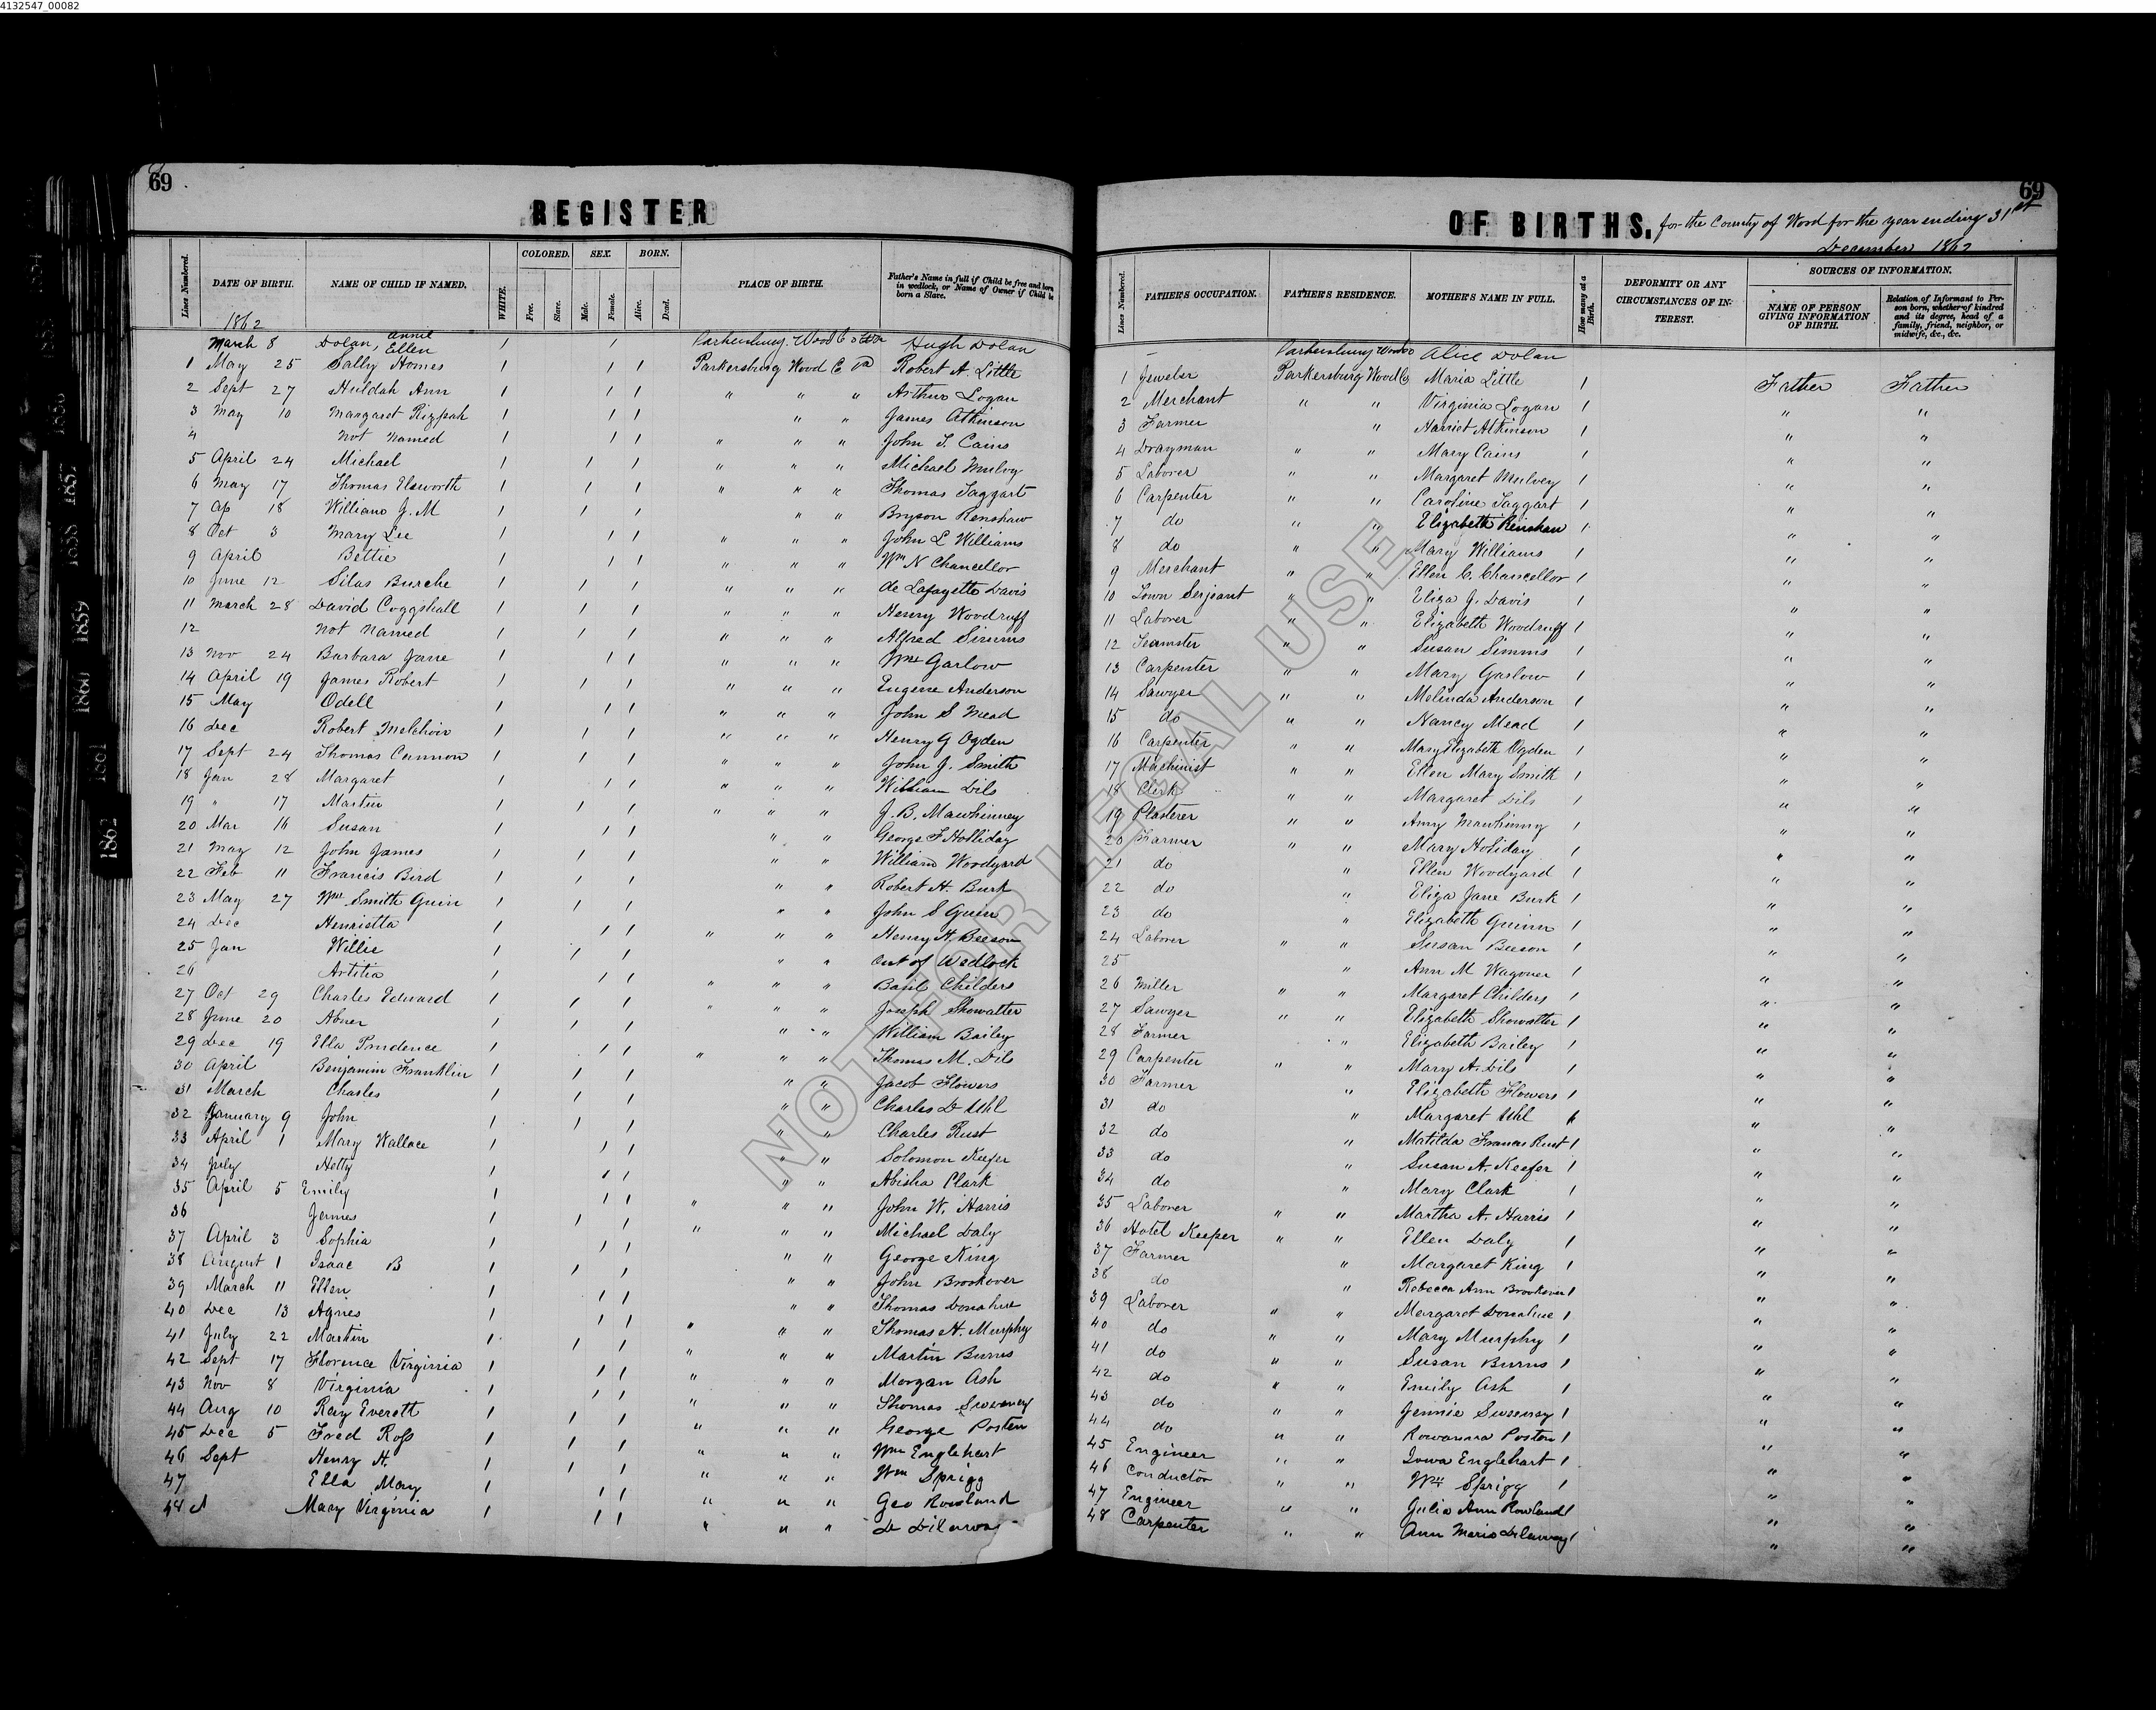 4132547_00082
69
REGISTER
Lines Numbered.
DATE OF BIRTH.
NAME OF CHILD IF NAMED.
WHITE.
COLORED.
Free.
Slave.
SEX.
Male.
Female.
BORN.
Alive.
Dead.
PLACE OF BIRTH.
Father's Name in full if Child be free and born in wedlock, or Name of Owner if Child be born a Slave.
1862
March 8 Dolan, Annie Ellen 1 1 Hugh Dolan
1 May 25 Sally Homes 1 1 1 Parkersburg Wood Co Va Robert A. Little
2 Sept 27 Huldah Ann 1 1 1 " " " Arthur Logan
3 May 10 Margaret Rizpah 1 1 1 " " James Atkinson
4 Not Named 1 1 1 " " " John T. Cains
5 April 24 Michael 1 1 1 " " " Michael Mulvy
6 May 17 Thomas Elsworth 1 1 1 " " " Thomas Taggart
7 Ap 18 William J. M 1 1 1 " " Bryson Renshaw
8 Oct 3 Mary Lee 1 1 1 " " " John L Williams
9 April Bettie 1 1 1 " " " Wm N Chancellor
10 June 12 Silas Burche 1 1 1 " " " de Lafayette Davis
11 March 28 David Coggshall 1 1 1 " " " Henry Woodruff
12 Not Named 1 1 1 " " " Alfred Simms
13 Nov 24 Barbara Jane 1 1 1 " " " Wm Garlow
14 April 19 James Robert 1 1 1 " " " Eugene Anderson
15 May Odell 1 1 1 " " " John S Mead
16 Dec Robert Melchoir 1 1 1 " " " Henry G Ogden
17 Sept 24 Thomas Cannon 1 1 1 " " " John J. Smith
18 Jan 28 Margaret 1 1 1 " " " William Dils
19 " 17 Martin 1 1 1 " " " J. B. Mawhinney
20 Mar 16 Susan 1 1 1 " " George F Holliday
21 May 12 John James 1 1 1 " " William Woodyard
22 Feb 11 Francis Bird 1 1 1 " " Robert H. Burk
23 May 27 Wm Smith Guin 1 1 1 " " John S Guin
24 Dec Henrietta 1 1 1 " " " Henry H. Beeson
25 Jan Willie 1 1 1 " " Out of Wedlock
26 Artitia 1 1 1 " " " Basil Childers
27 Oct 29 Charles Edward 1 1 1 " " " Joseph Showalter
28 June 20 Abner 1 1 1 " " William Bailey
29 Dec 19 Ella Prudence 1 1 1 " " " Thomas M. Dils
30 April Benjamin Franklin 1 1 1 " " Jacob Flowers
31 March Charles 1 1 1 " " Charles D Uhl
32 January 9 John 1 1 1 " " Charles Rust
33 April 1 Mary Wallace 1 1 1 " " Solomon Keefer
34 July Hetty 1 1 1 " " Abisha Clark
35 April 5 Emily 1 1 1 " " " John W. Harris
36 James 1 1 1 " " " Michael Daly
37 April 3 Sophia 1 1 1 " " George King
38 August 1 Isaac B 1 1 1 " " John Brookover
39 March 11 Ellen 1 1 1 " " Thomas Donahue
40 Dec 13 Agnes 1 1 1 " " " Thomas H. Murphy
41 July 22 Martin 1 1 1 " " " Martin Burns
42 Sept 17 Florence Virginia 1 1 1 " " " Morgan Ash
43 Nov 8 Virginia 1 1 1 " " " Thomas Sweeney
44 Aug 10 Ray Everett 1 1 1 " " " George Posten
45 Dec 5 Fred Ross 1 1 1 " " " Wm Englehart
46 Sept Henry H. 1 1 1 " " " Wm Sprigg
47 Ella May 1 1 1 " " " Geo Rowland
48 Mary Virginia 1 1 1 " " "
69
OF BIRTHS, for the County of Wood for the year ending 31st
December 1862
Lines Numbered.
FATHER'S OCCUPATION.
FATHER'S RESIDENCE.
MOTHER'S NAME IN FULL.
How many at a Birth.
DEFORMITY OR ANY CIRCUMSTANCES OF INTEREST.
SOURCES OF INFORMATION.
NAME OF PERSON GIVING INFORMATION OF BIRTH.
Relation of Informant to Person born, whether of kindred and its degree, head of a family, friend, neighbor, or midwife, &c., &c.
Alice Dolan
1 Jeweler Parkersburg Wood Co Maria Little 1 Father Father
2 Merchant " " Virginia Logan 1 " "
3 Farmer " Harriet Atkinson 1 " "
4 Drayman " " Mary Cains 1 " "
5 Laborer " " Margaret Mulvey 1 " "
6 Carpenter " " Caroline Taggart 1 " "
7 do " " Elizabeth Renshaw 1 " "
8 do " " Mary Williams 1 " "
9 Merchant " " Ellen C. Chancellor 1 " "
10 Town Serjeant " " Eliza J. Davis 1 " "
11 Laborer " " Elizabeth Woodruff 1 " "
12 Teamster " " Susan Simms 1 " "
13 Carpenter " " Mary Gaslow 1 " "
14 Sawyer " " Melinda Anderson 1 " "
15 do " " Nancy Mead 1 " "
16 Carpenter " " Mary Elizabeth Ogden 1 " "
17 Machinist " " Ellen Mary Smith 1 " "
18 Clerk " " Margaret Dils 1 " "
19 Plasterer " " Amy Mawhinny 1 " "
20 Farmer " " Mary Holiday 1 " "
21 do " Ellen Woodyard 1 " "
22 do " Eliza Jane Burk 1 " "
23 do " Elizabeth Guinn 1 " "
24 Laborer " " Susan Beeson 1 " "
25 " Ann M Wagoner 1 " "
26 Miller " " Margaret Childers 1 " "
27 Sawyer " " Elizabeth Showalter 1 " "
28 Farmer " Elizabeth Bailey 1 " "
29 Carpenter " " Mary A. Dils 1 " "
30 Farmer " Elizabeth Flowers 1 " "
31 do " Margaret Uhl 1 " "
32 do " Matilda Frances Rust 1 " "
33 do " Susan A. Keefer 1 " "
34 do " Mary Clark 1 " "
35 Laborer " " Martha A. Harris 1 " "
36 Hotel Keeper " " Ellen Daly 1 " "
37 Farmer " Margaret King 1 " "
38 do " Rebecca Ann Brookover 1 " "
39 Laborer " " Margaret Donahue 1 " "
40 do " " Mary Murphy 1 " "
41 do " " Susan Burns 1 " "
42 do " " Emily Ash 1 " "
43 do " " Jennie Sweeney 1 " "
44 do " " Rowanna Posten 1 " "
45 Engineer " " Iowa Englehart 1 " "
46 Conductor " " Wm Sprigg 1 " "
47 Engineer " " Julia Ann Rowland 1 " "
48 Carpenter " " Ann Maria 1 " "
1857
1858
1859
1860
1861
1862
NOT FOR LEGAL USE